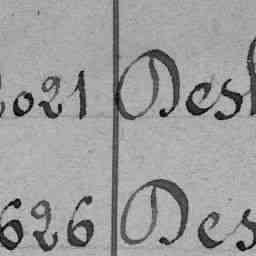 2021 Des
626 Des